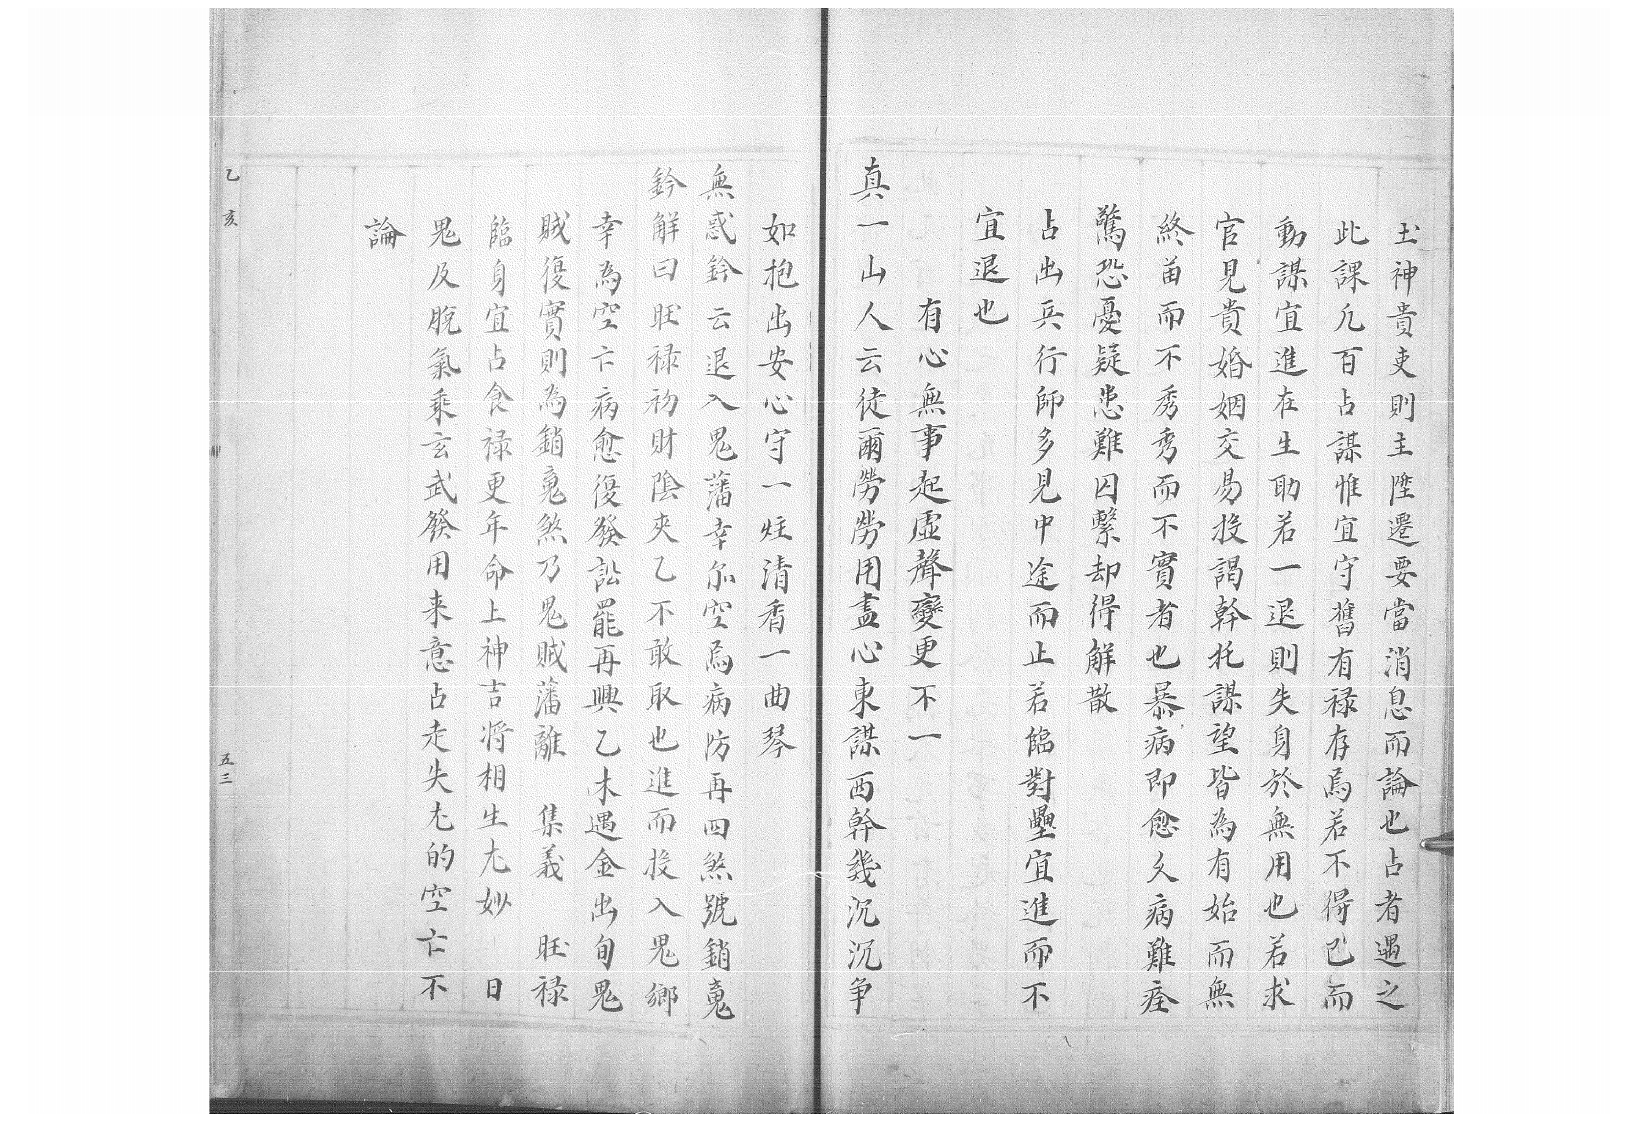 土神貴吏則主陞遷要當消息而論也占者遇之
此課凢百占謀惟宜守舊有禄存焉若不得已而
動謀宜進在生助若一退則失身於無用也若求
官見貴婚姻交易投謁幹托謀望皆為有始而無
終苗而不秀秀而不實者也暴病即愈久病難痊
驚恐憂疑患難囚繫却得解散
占出兵行師多見中途而止若臨對壘宜進而不
宜退也
有心無事起虛聲變更不一
真一山人云徒爾勞勞用盡心東謀西幹幾沉沉争
如抱出安心守一炷清香一曲琴
無惑鈐云退入鬼藩幸尔空焉病防再四煞號銷䰟
鈐解曰旺禄初財陰夾乙不敢取也進而投入鬼鄉
幸為空亡病愈復發訟罷再興乙木遇金出旬鬼
賊復實則為銷䰟煞乃鬼賊藩離 集義 旺禄
臨身宜占食禄更年命上神吉将相生尤妙 日
鬼及脫氣乘玄武發用来意占走失尤的空亡不
論
乙亥
五三